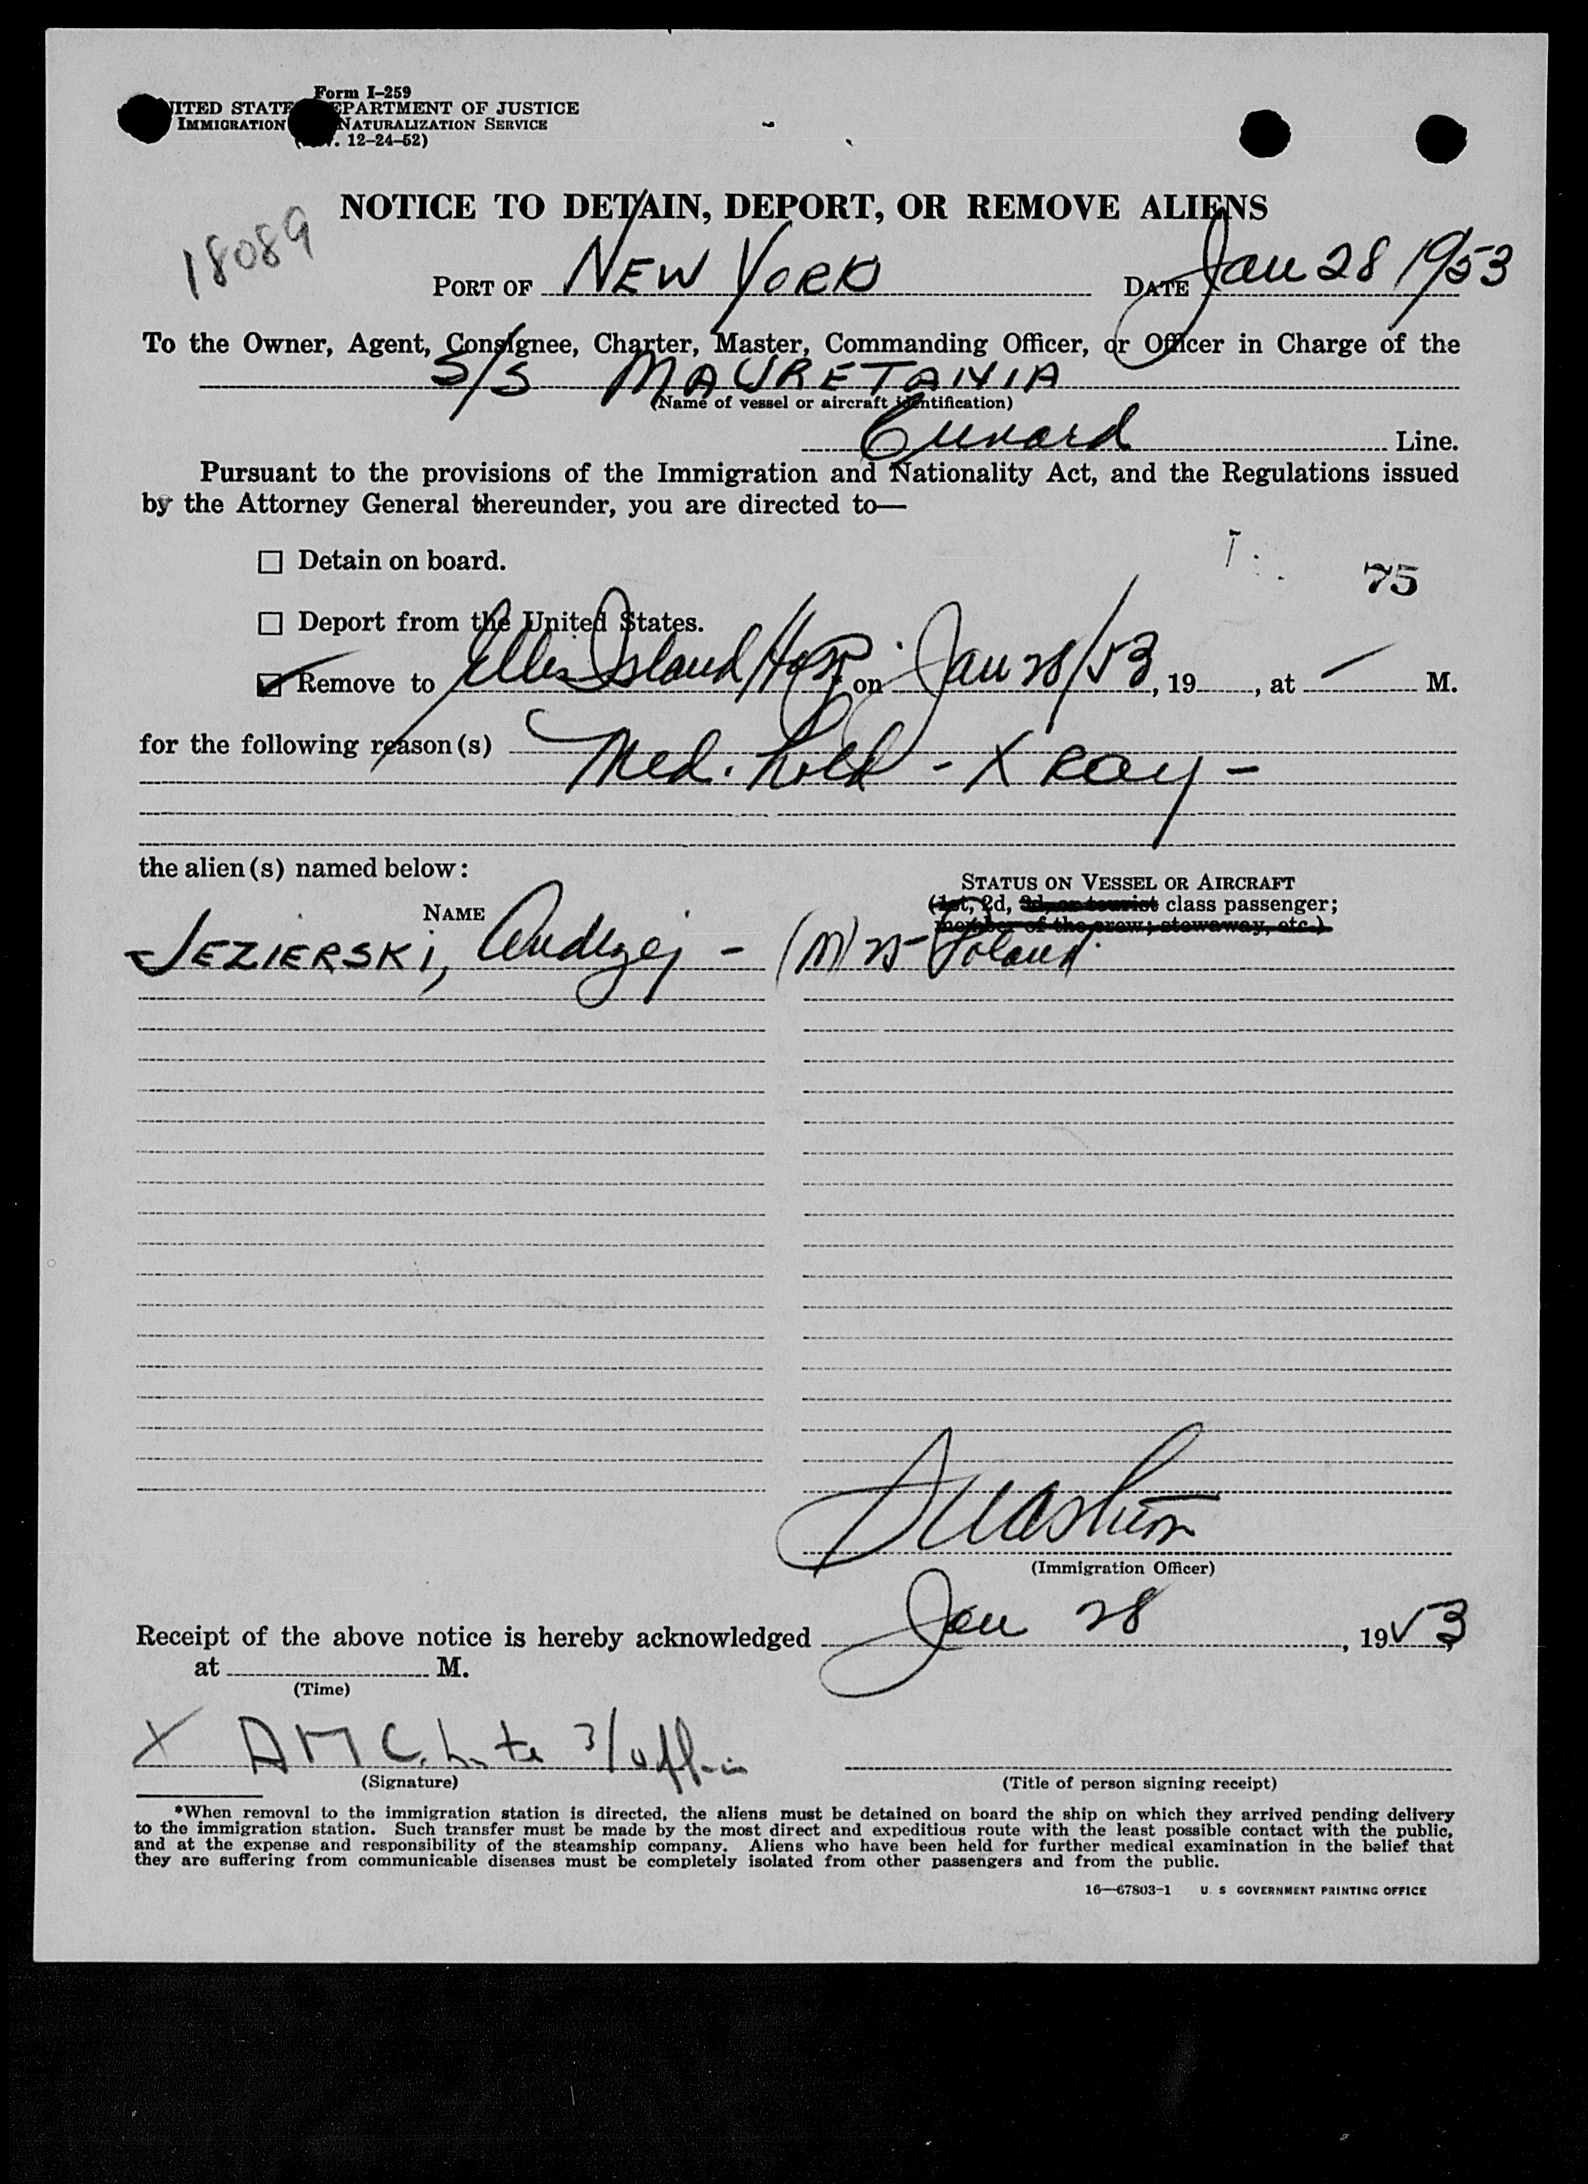 Form I–259
UNITED STATES DEPARTMENT OF JUSTICE
IMMIGRATION NATURALIZATION SERVICE
12–24–52)
18089
NOTICE TO DETAIN, DEPORT, OR REMOVE ALIENS
PORT OF NEW YORK DATE Jan 28 1953
To the Owner, Agent, Consignee, Charter, Master, Commanding Officer, or Officer in Charge of the
S/S MAURETANIA
(Name of vessel or aircraft identification)
Cunard Line.
Pursuant to the provisions of the Immigration and Nationality Act, and the Regulations issued
by the Attorney General thereunder, you are directed to—
☐ Detain on board.
75
☐ Deport from the United States.
☑ Remove to Ellis Island Hosp. on Jan 28/53, 19 , at — M.
for the following reason(s)
Med. hold - X Ray -
the alien(s) named below:
STATUS ON VESSEL OR AIRCRAFT
(1st, 2d, 3d, or tourist class passenger;
member of the crew; stowaway, etc.)
NAME
JEZIERSKI, Andrzej - (M) 25 - Poland
(Immigration Officer)
Receipt of the above notice is hereby acknowledged Jan 28, 1953
at M.
(Time)
X
(Signature) (Title of person signing receipt)
*When removal to the immigration station is directed, the aliens must be detained on board the ship on which they arrived pending delivery
to the immigration station. Such transfer must be made by the most direct and expeditious route with the least possible contact with the public,
and at the expense and responsibility of the steamship company. Aliens who have been held for further medical examination in the belief that
they are suffering from communicable diseases must be completely isolated from other passengers and from the public.
16—67803-1 U. S GOVERNMENT PRINTING OFFICE